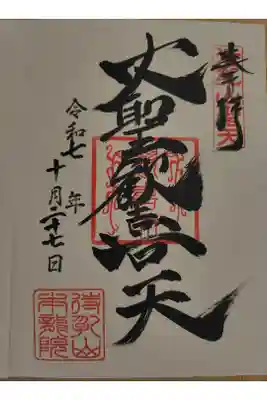 奉拝
大聖歓喜天
令和七年
十月二十七日
待乳山
本龍院